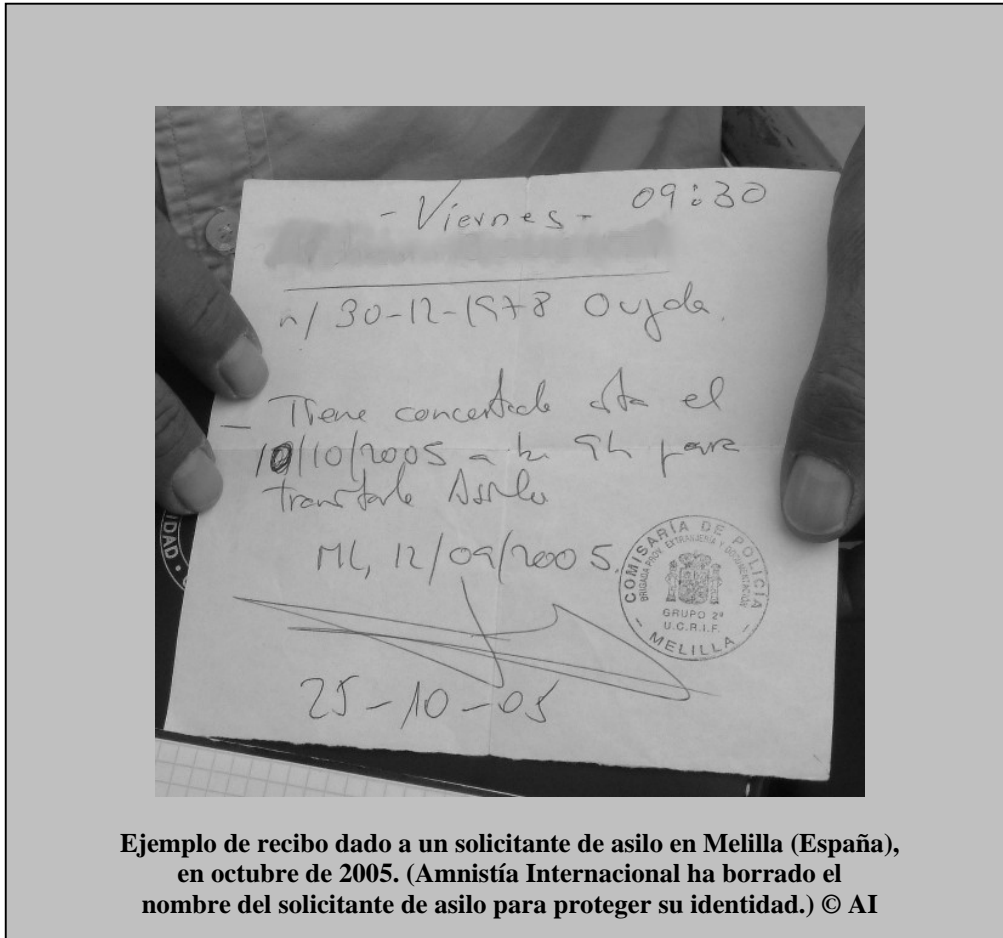 - Viernes - 09:30
n/ 30-12-1978 Oujda.
— Tiene concertada cita el
10/10/2005 a las 9h para
Asilo
ML, 12/09/2005.
COMISARÍA DE POLICÍA
BRIGADA PROV. EXTRANJERÍA Y DOCUMENTACIÓN
GRUPO 2º
U.C.R.I.F.
- MELILLA -
25-10-05
IDAD
Ejemplo de recibo dado a un solicitante de asilo en Melilla (España),
en octubre de 2005. (Amnistía Internacional ha borrado el
nombre del solicitante de asilo para proteger su identidad.) © AI